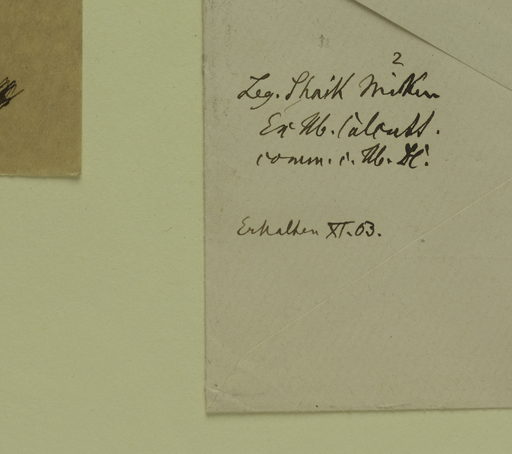 2
Leg. Shaik Mokim
Ex Hb. Calcutt.
comm. c. Hb.
Erhalten XI.03.